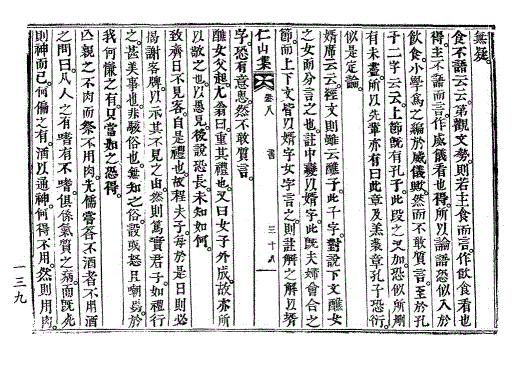 無疑
食不語云云第觀文勢則若主食而言作飲食看也
得主不語而言作威儀看也得所以論語恐似入於
飲食小學爲之編於威儀歟然而不敢質言至於孔
子二字云云上節旣有孔子此段之又加恐似所刪
有未盡所以先輩亦有曰此章及羔裘章孔子恐衍
似是定論
婿席云云經文則雖云醮子此千字對說下文醮女
之女而分言之也註中變以婿字此旣夫婦會合之
節而上下文皆以婿字女字言之則註解之解以婿
仁山集 卷八 書 三十八
字恐有意思然不敢質言
醮女父起尤翁曰重其禮也又曰女子外成故亦所
以敬之也以愚見後說恐長未知如何
致齊日不見客自是禮也故程夫子每於是日則必
揭謝客牌以示其不見之由然則篤實君子如禮行
之甚美事也非駭俗也無知之俗設或怒且嘲焉於
我何慊之有只當如之恐得
凶親之不肉而祭不用肉先儒嘗各不酒者不用酒
之問曰凡人之有嗜有不嗜俱係氣質之病而旣死
則神而已何偏之有酒以通神何得不用然則用肉
一三九